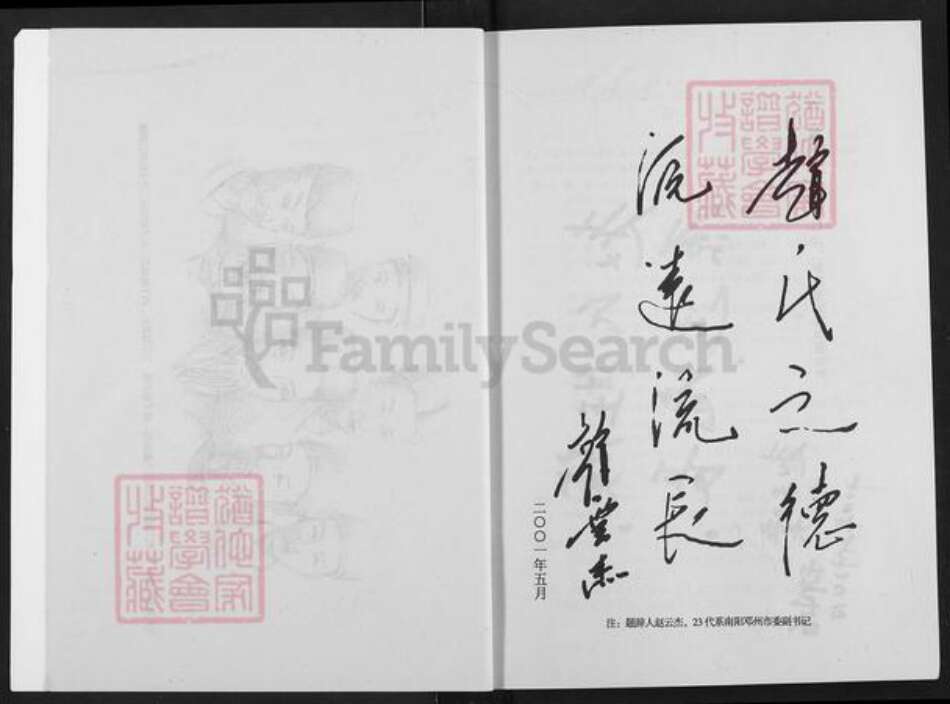 氏之德
源遠流長
二〇〇一年五月
注：题辞人赵云杰，23代系南阳邓州市委副书记
猶他家
譜學會
收藏
猶他家
譜學會
收藏
FamilySearch